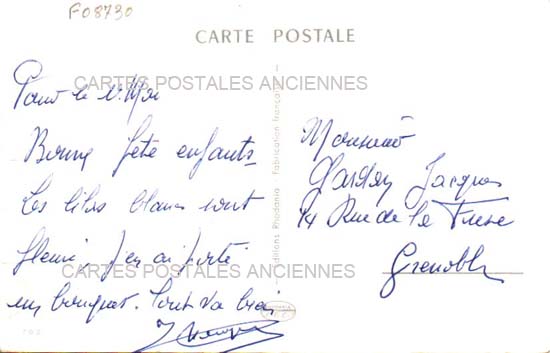 F08730
CARTE POSTALE
CARTES POSTALES ANCIENNES
Pour le 1er Mai
Bonne fête enfants
Les lilas blancs sont
fleuris, j'en ai porté
un bouquet. Tout va bien
Editions Rhodania Fabrication française
Monsieur
Jacques
14 Rue de la
Grenoble
CARTES POSTALES ANCIENNES